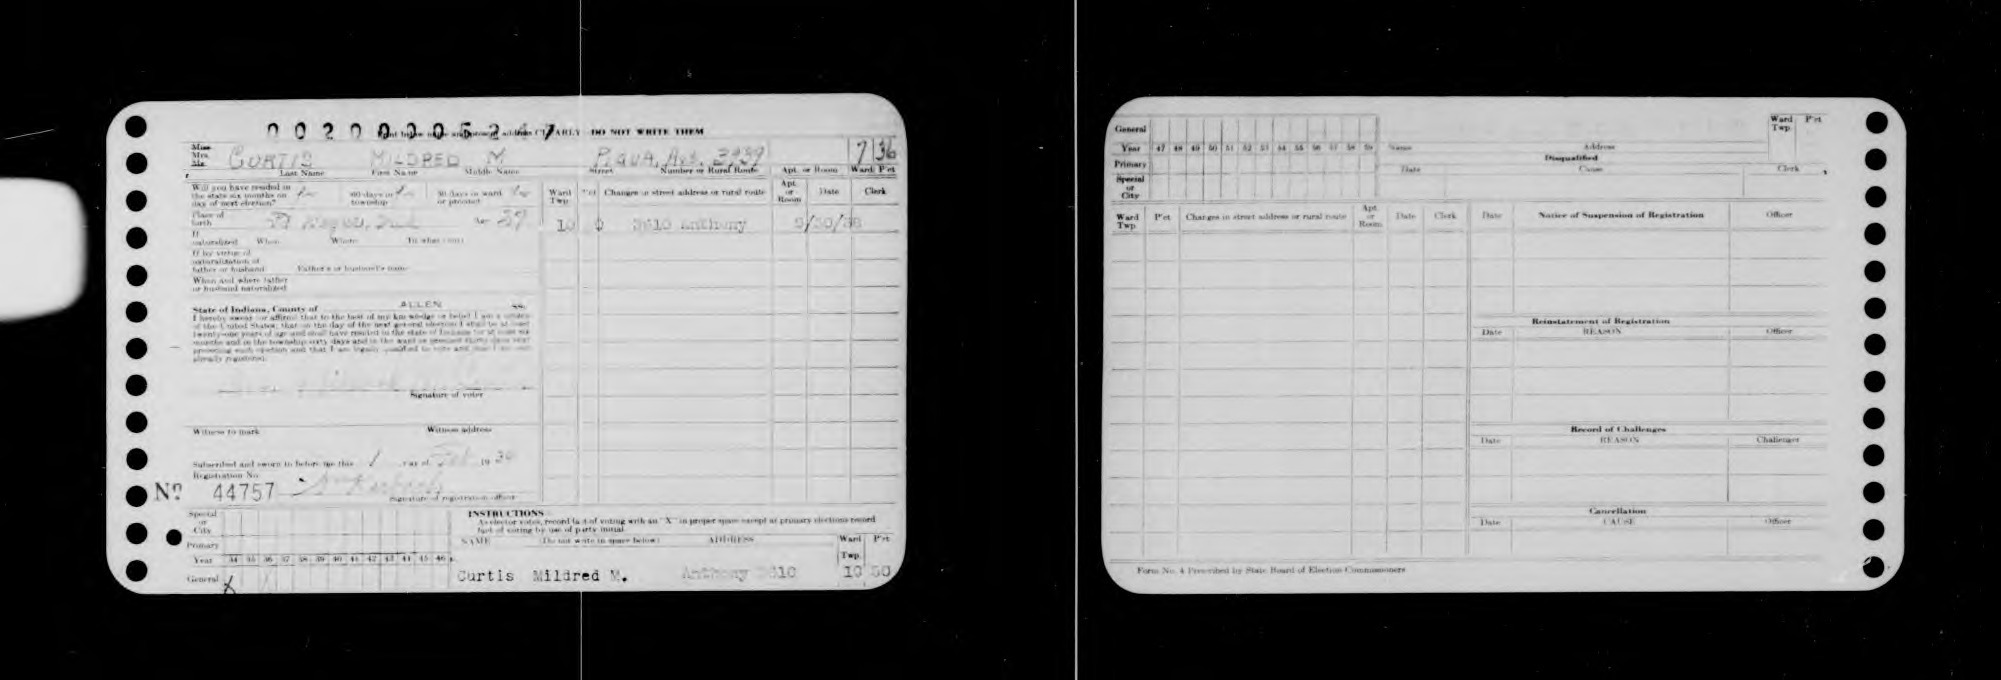 Print below name and present address CLEARLY - DO NOT WRITE THEM
Miss
Mrs.
Mr. CURTIS MILDRED M. PIQUA, AVE. 3939 7 36
Last Name First Name Middle Name Street Number or Rural Route Apt. or Room Ward P'ct
Will you have resided in
the state six months on
day of next election?
60 days in
township
30 days in ward
or precinct
Place of
birth Ft Wayne, Ind Age 39
If
naturalized When Where In what court
If by virtue of
naturalization of
father or husband Father's or husband's name
When and where father
or husband naturalized
State of Indiana, County of ALLEN ss.
I hereby swear or affirm that to the best of my knowledge or belief I am a citizen
of the United States; that on the day of the next general election I shall be at least
twenty-one years of age and shall have resided in the state of Indiana for at least six
months and in the township sixty days and in the ward or precinct thirty days next
preceding such election and that I am legally qualified to vote and that I am not
already registered.
Signature of voter
Witness to mark Witness address
Subscribed and sworn to before me this 1 day of Feb 19
Registration No.
Nº 44757
Signature of registration officer
Ward
Twp. P'ct Changes in street address or rural route Apt.
or
Room Date Clerk
10 3610 Anthony 9/30/38
Special
or
City
Primary
Year 34 35 36 37 38 39 40 41 42 43 44 45 46
General X
INSTRUCTIONS
As elector votes, record fact of voting with an "X" in proper space except at primary elections record
fact of voting by use of party initial.
NAME (Do not write in space below) ADDRESS Ward
Twp. P'ct
Curtis Mildred M. Anthony 3610 10
General
Year 47 48 49 50 51 52 53 54 55 56 57 58 59
Primary
Special
or
City
Name Address Ward
Twp. P'ct
Disqualified
Date Cause Clerk
Ward
Twp. P'ct Changes in street address or rural route Apt.
or
Room Date Clerk
Date Notice of Suspension of Registration Officer
Reinstatement of Registration
Date REASON Officer
Record of Challenges
Date REASON Challenger
Cancellation
Date CAUSE Officer
Form No. 4 Prescribed by State Board of Election Commissioners